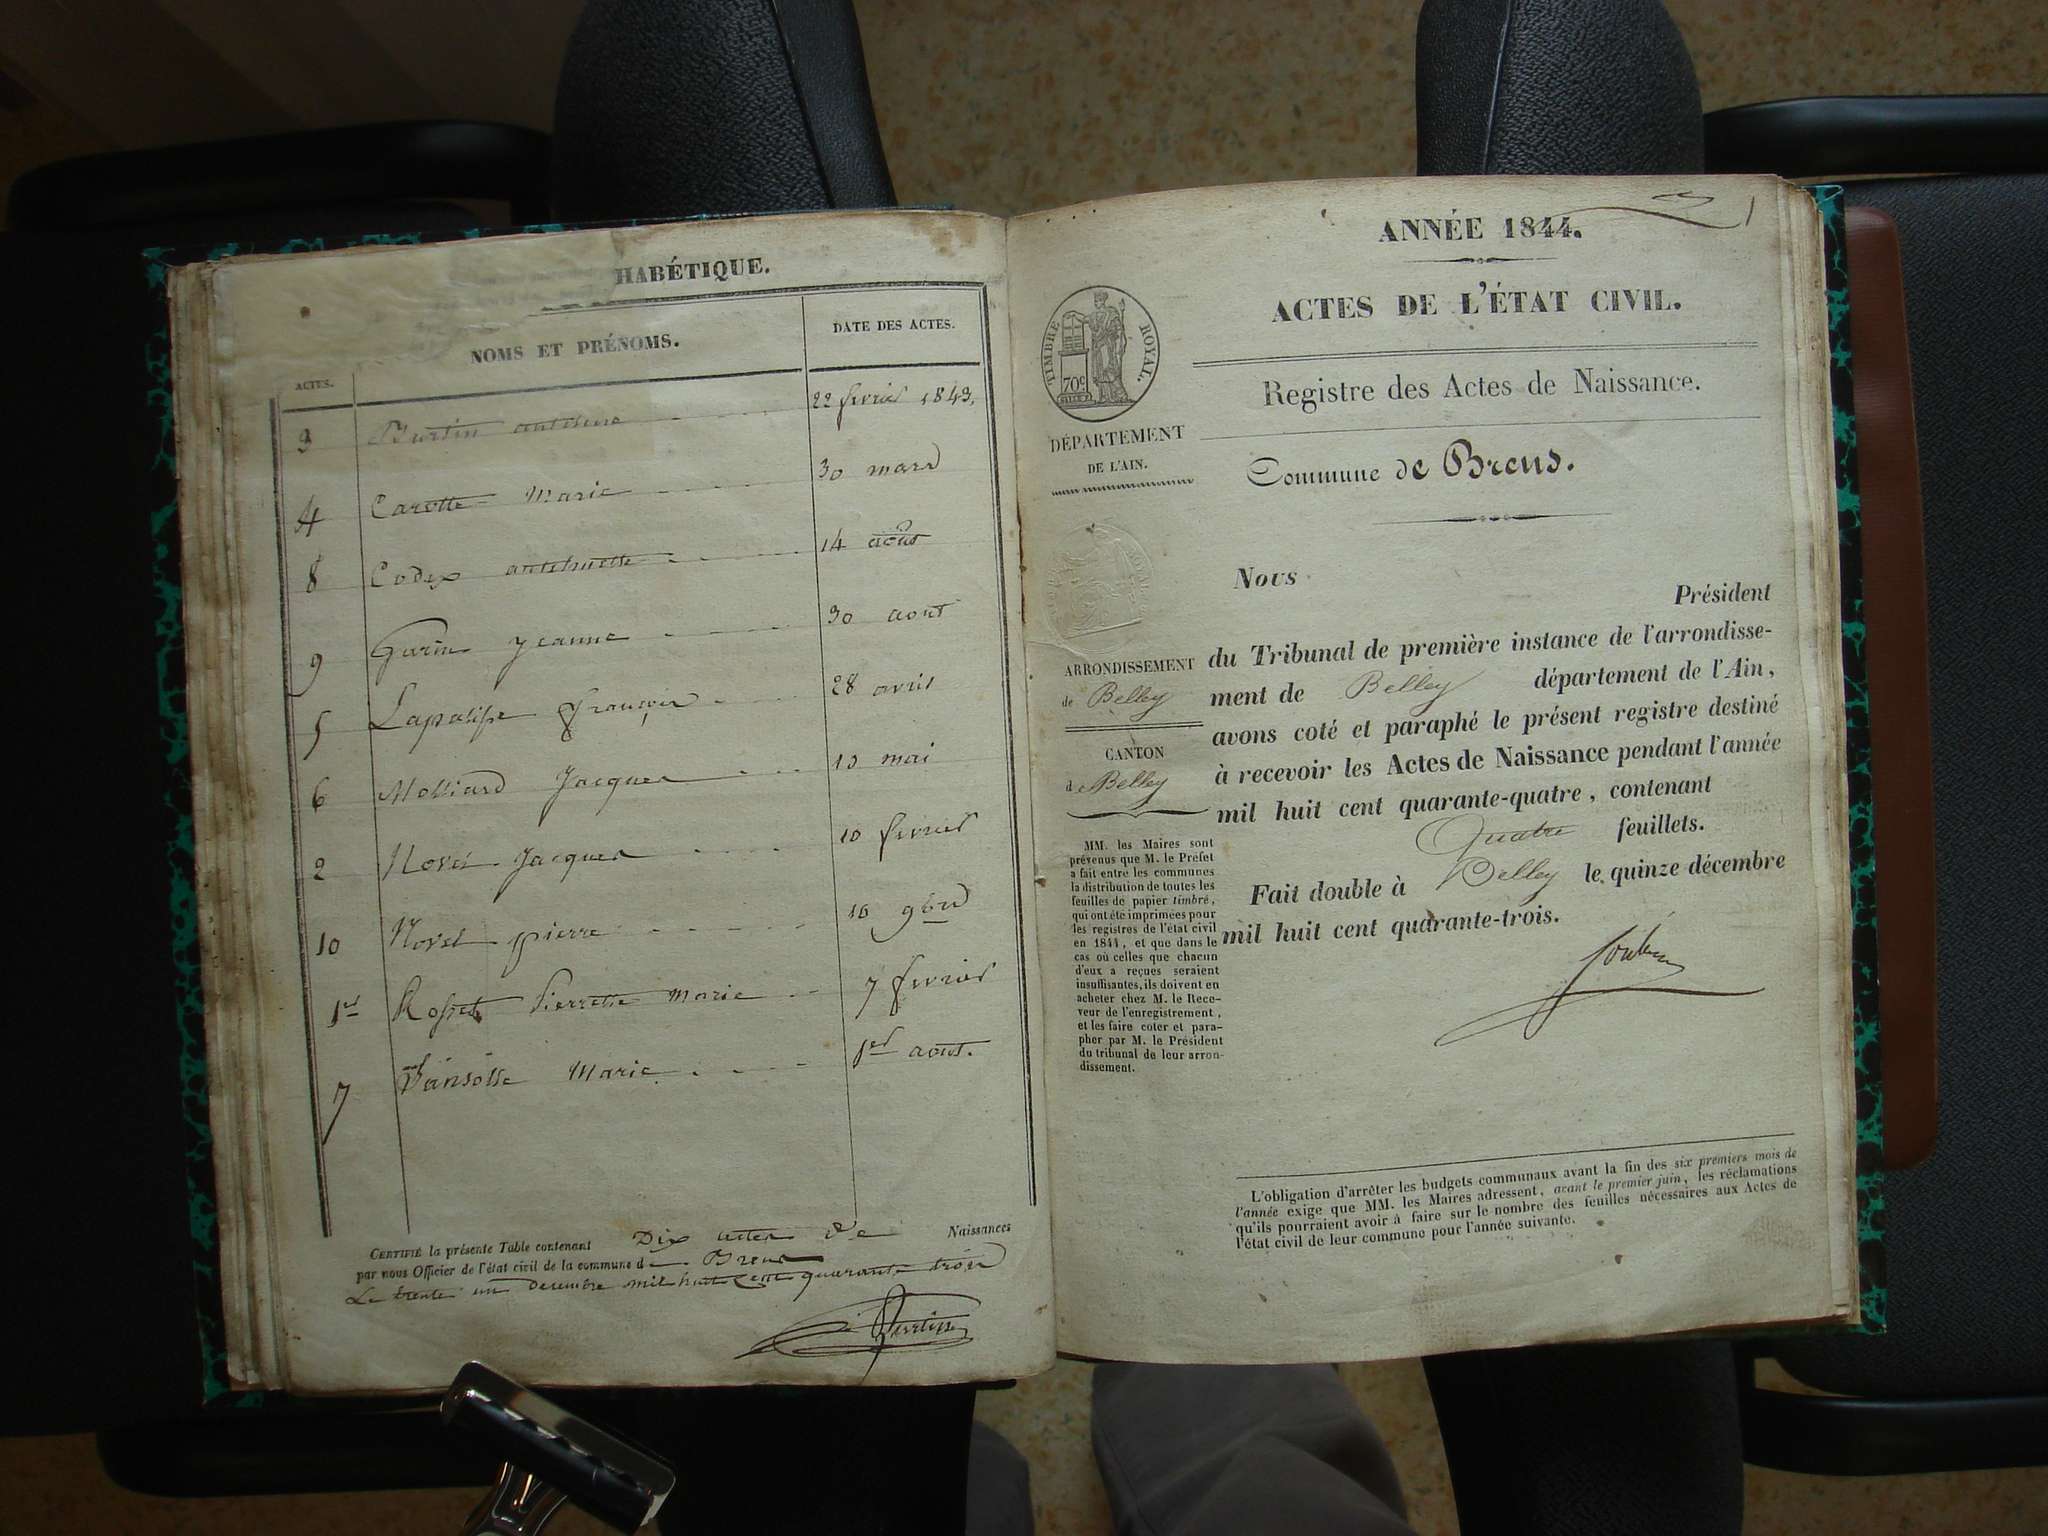 HABÉTIQUE.
ACTES. NOMS ET PRÉNOMS. DATE DES ACTES.
3 Burtin antelme 22 fevrier 1843.
4 Carotte Marie 30 mars
8 Codex anthelmette 14 août
9 Gurin Jeanne 30 aout
5 Lapalisse françois 28 avril
6 Molliard Jacques 13 mai
2 Novel Jacques 10 fevrier
10 Novel pierre 16 9bre
1er Rosset Pierrette Marie 7 fevrier
7 Marie 1er aout.
CERTIFIÉ la présente Table contenant Dix actes de Naissances
par nous Officier de l'état civil de la commune de Brens
Le trente un decembre mil huit cent quarante trois
Burtin
ANNÉE 1844.
ACTES DE L'ÉTAT CIVIL.
TIMBRE ROYAL.
70c
Registre des Actes de Naissance.
DÉPARTEMENT
DE L'AIN.
Commune de Brens.
Nous Président
du Tribunal de première instance de l'arrondisse-
ment de Belley département de l'Ain,
avons coté et paraphé le présent registre destiné
à recevoir les Actes de Naissance pendant l'année
mil huit cent quarante-quatre, contenant
Quatre feuillets.
Fait double à Belley le quinze décembre
mil huit cent quarante-trois.
ARRONDISSEMENT
de Belley
CANTON
d Belley
MM. les Maires sont
prévenus que M. le Préfet
a fait entre les communes
la distribution de toutes les
feuilles de papier timbré,
qui ont été imprimées pour
les registres de l'état civil
en 1844, et que dans le
cas où celles que chacun
d'eux a reçues seraient
insuffisantes, ils doivent en
acheter chez M. le Rece-
veur de l'enregistrement,
et les faire coter et para-
pher par M. le Président
du tribunal de leur arron-
dissement.
L'obligation d'arrêter les budgets communaux avant la fin des six premiers mois de
l'année exige que MM. les Maires adressent, avant le premier juin, les réclamations
qu'ils pourraient avoir à faire sur le nombre des feuilles nécessaires aux Actes de
l'état civil de leur commune pour l'année suivante.